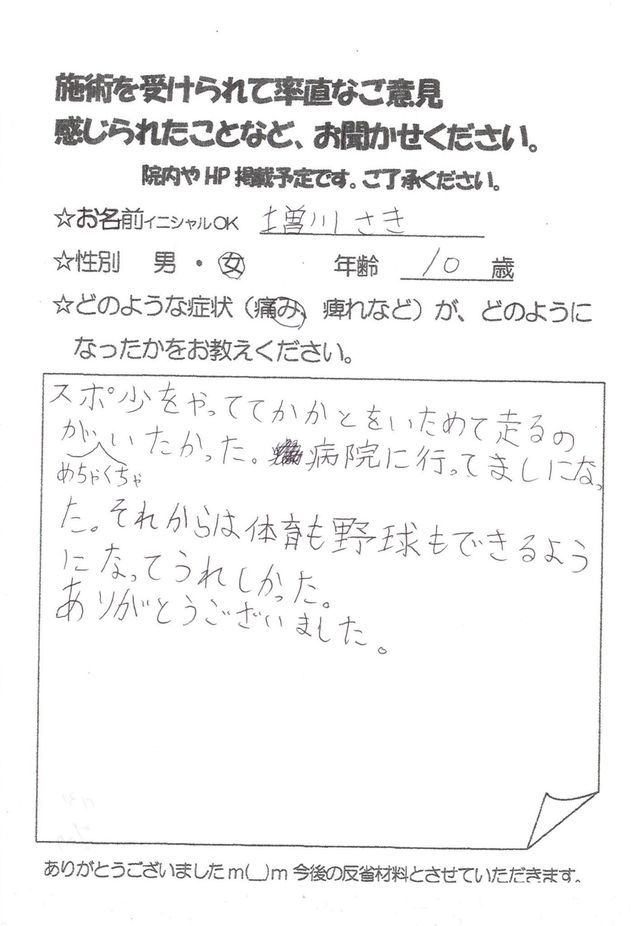 施術を受けられて率直なご意見
感じられたことなど、お聞かせください。
院内やHP掲載予定です。ご了承ください。
☆お名前イニシャルOK 増川さき
☆性別 男・女 年齢 10 歳
☆どのような症状（痛み、痺れなど）が、どのように
なったかをお教えください。
スポ少をやっててかかとをいためて走るの
がいたかった。病院に行ってましになっ
めちゃくちゃ
た。それからは体育も野球もできるよう
になってうれしかった。
ありがとうございました。
ありがとうございましたm(__)m 今後の反省材料とさせていただきます。